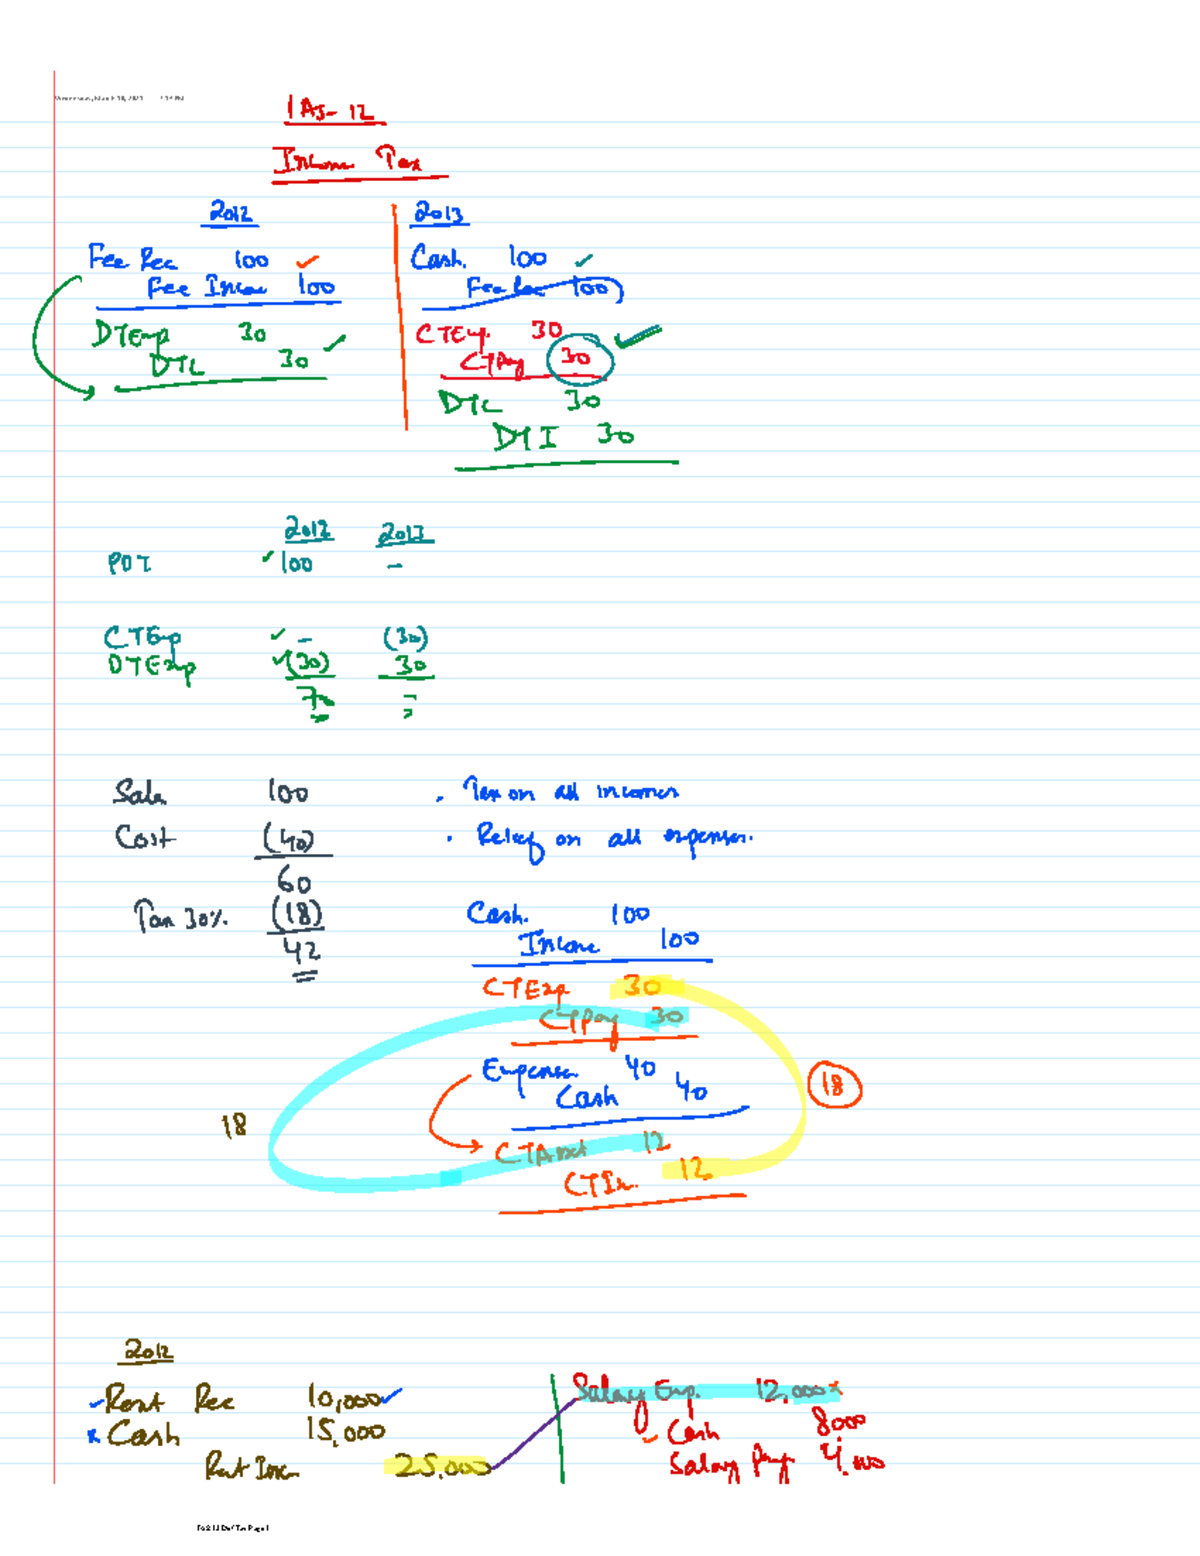 IAS-12
Income Tax
2012
Fee Rec 100 ✓
Fee Income 100
DTExp 30
DTL 30 ✓
2013
Cash. 100 ✓
Fee Rec 100
CTExp. 30
CTPay 30 ✓
DTL 30
DTI 30
2012 2013
✓ 100 –
CTExp ✓ – (30)
DTExp ✓ (30) 30
70 –
Sale 100
Cost (40)
60
Tax 30% (18)
42
. Tax on all incomes
. Relief on all expenses.
Cash. 100
Income 100
CTExp 30
CTPay 30
Expense 40
Cash 40
CTAsset 12
CTIn. 12
18
18
2012
✓ Rent Rec 10,000 ✓
x Cash 15,000
Rent Inc 25,000
Salary Exp. 12,000 x
✓ Cash 8000
Salary Pay 4,000